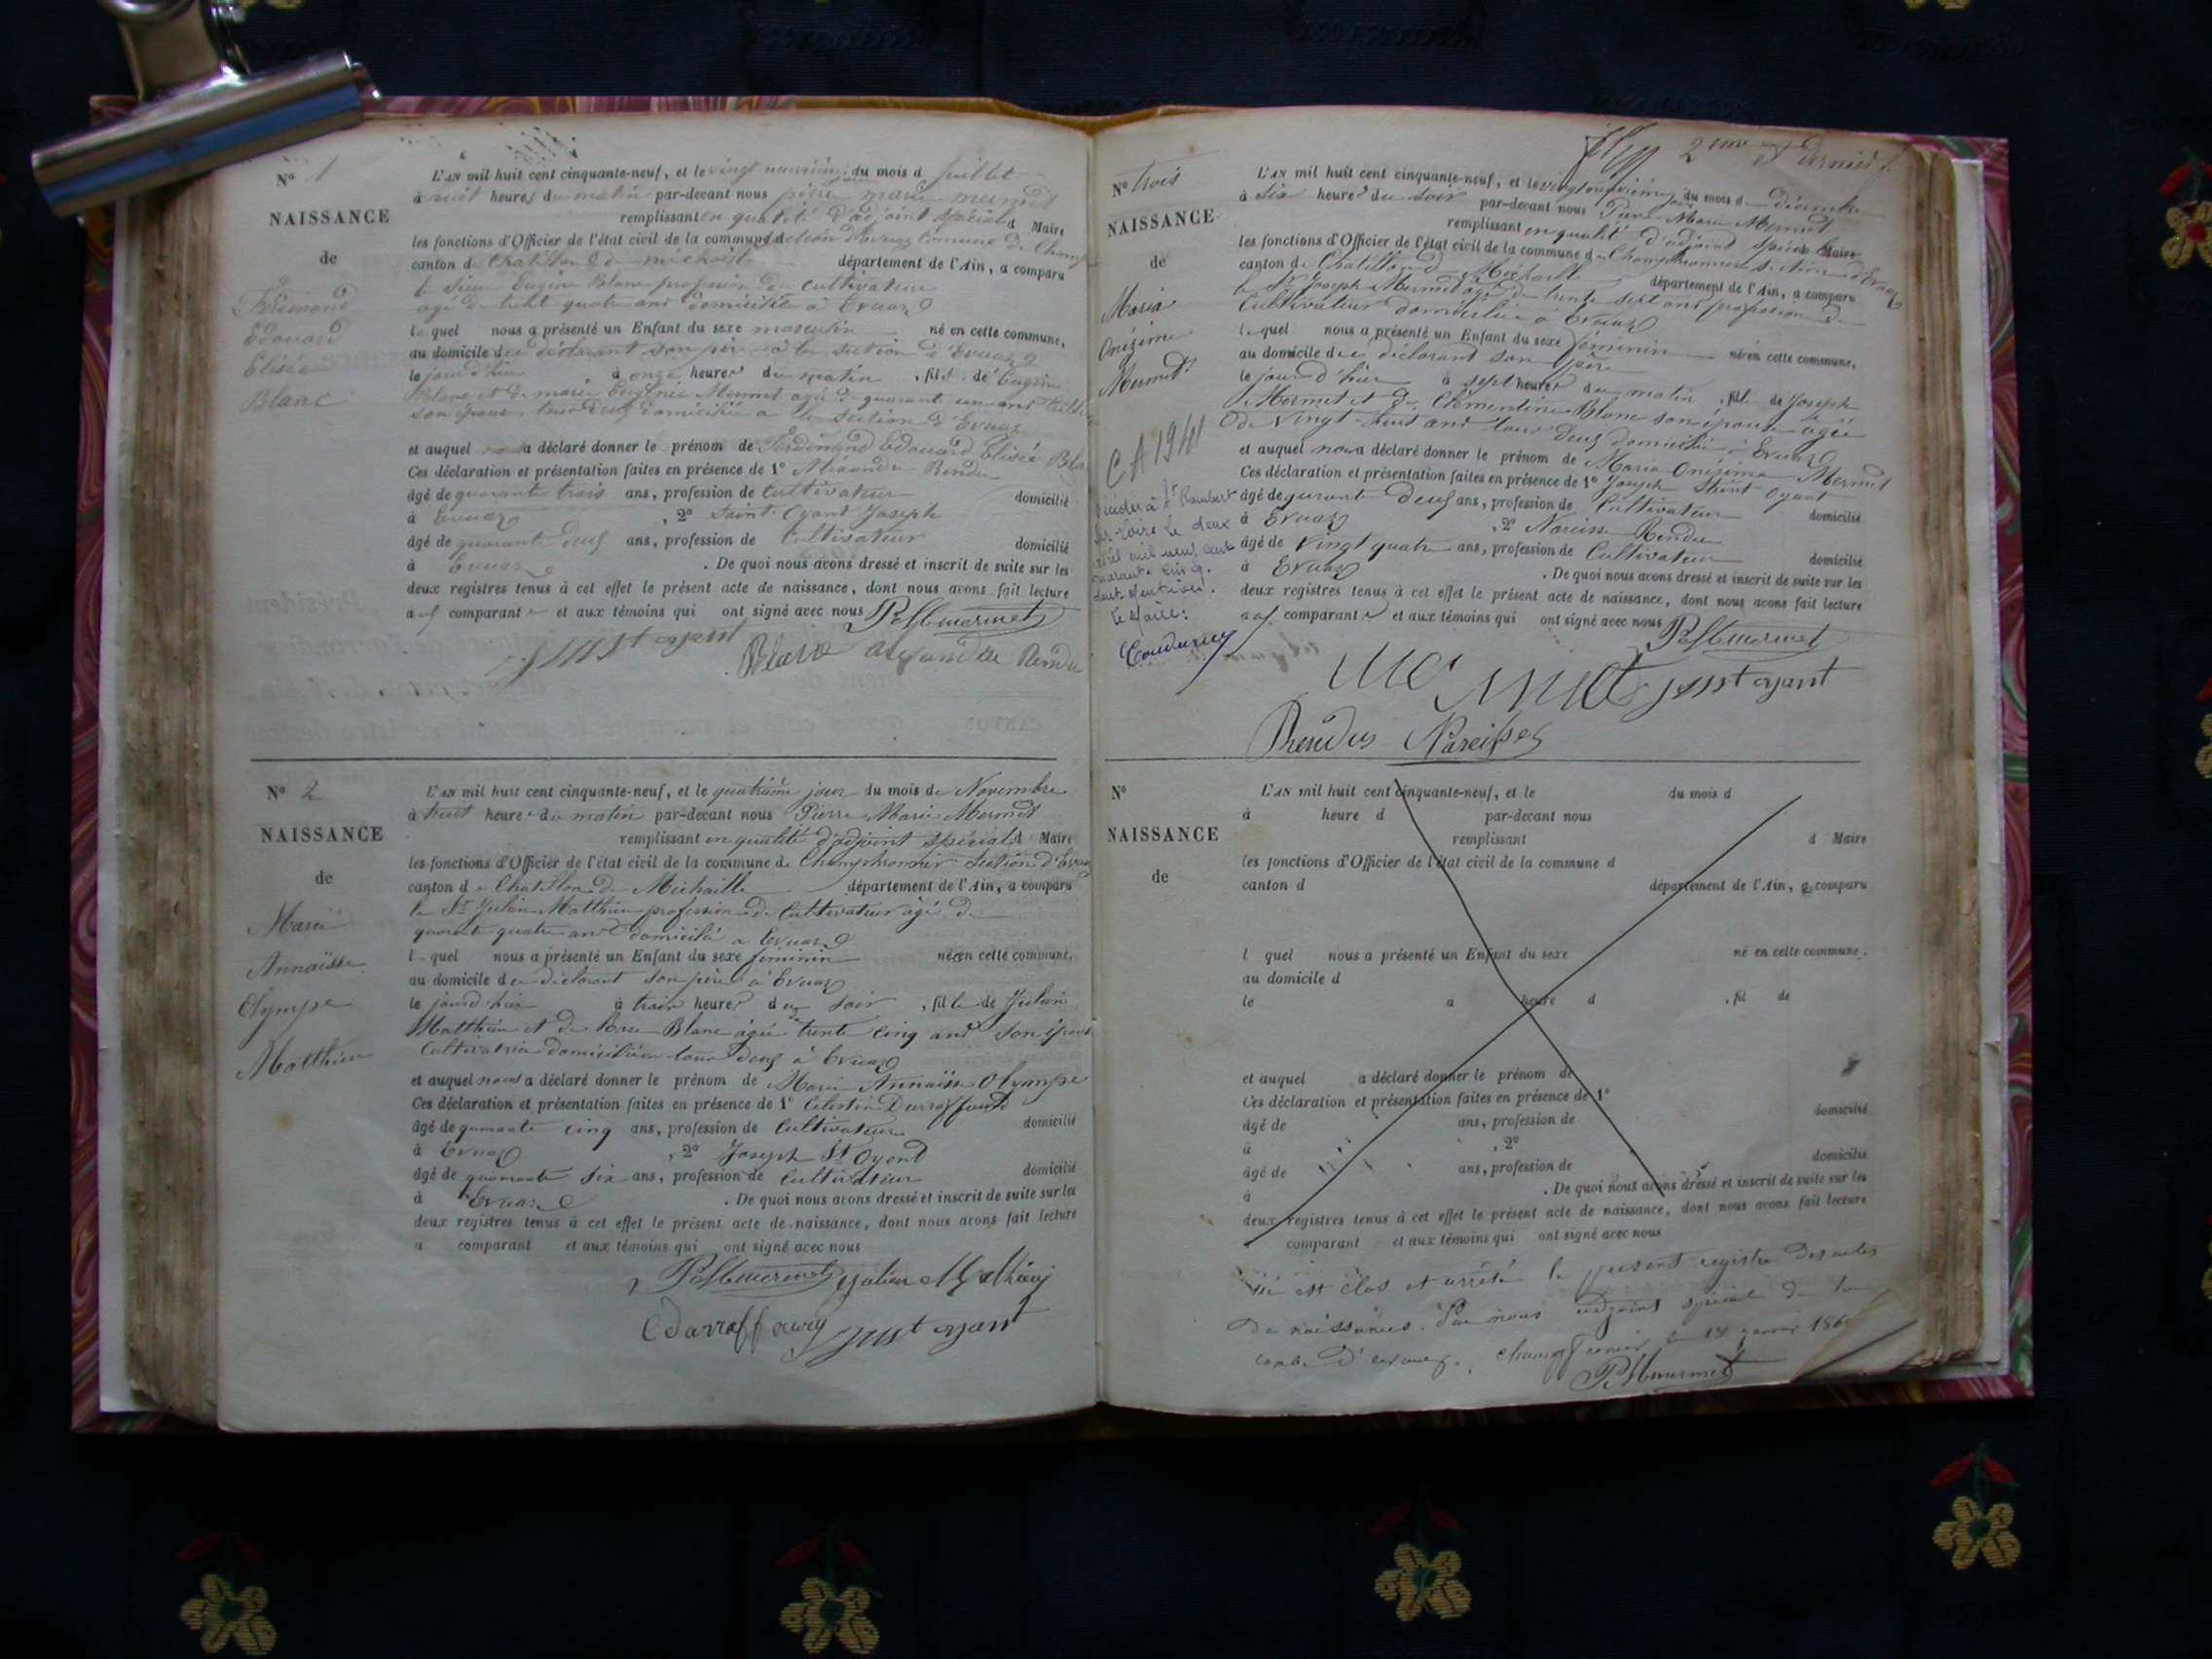 N° 1
NAISSANCE
de
Ferdinand
Edouard
Elisée
Blanc
L'AN mil huit cent cinquante-neuf, et le vingt neuvième jour du mois d Juillet
à huit heures du matin par-devant nous pierre marie mermet
remplissant en qualité d'adjoint spécial d Maire
les fonctions d'Officier de l'état civil de la commune d section d'Evuaz Comune de Champ
canton de Chatillon de michaille département de l'Ain, a comparu
le sieur Eugène Blanc profession de cultivateur
agé de trente quatre ans domicilié à Evuaz
lequel nous a présenté un Enfant du sexe masculin né en cette commune,
au domicile du déclarant son père à la section d'Evuaz
le jour d'hier à onze heures du matin, fils de Eugène
Blanc et de marie Eugénie Mermet agée de quarant un ans
son épouse tous deux domiciliés a la section d'Evuaz
et auquel nous a déclaré donner le prénom de Ferdinand Edouard Elisée Bla
Ces déclaration et présentation faites en présence de 1° Alexandre Rendu
âgé de quarante trois ans, profession de Cultivateur domicilié
à Evuaz, 2° Saint-Oyant Joseph
âgé de quarante deux ans, profession de Cultivateur domicilié
à Evuaz. De quoi nous avons dressé et inscrit de suite sur les
deux registres tenus à cet effet le présent acte de naissance, dont nous avons fait lecture
aux comparants et aux témoins qui ont signé avec nous PMmermet
J St oyant Blanc alexandre Rendu
N° 2
NAISSANCE
de
Marie
Annaïsse
Olympe
Matthieu
L'AN mil huit cent cinquante-neuf, et le quatrième jour du mois de Novembre
à huit heures du matin par-devant nous Pierre Marie Mermet
remplissant en qualité d'adjoint spécial d Maire
les fonctions d'Officier de l'état civil de la commune de Champfromier Section d'Evuaz
canton de Chatillon de Michaille département de l'Ain, a comparu
le Sr Julien Matthieu profession de Cultivateur âgé de
quarante quatre ans domicilié a Evuaz
lequel nous a présenté un Enfant du sexe féminin née en cette commune,
au domicile du déclarant son père à Evuaz
le jour d'hier à trois heures du soir, fille de Julien
Matthieu et de Rose Blanc âgée trente cinq ans son épouse
Cultivatrice domiciliés tous deux à Evuaz
et auquel nous a déclaré donner le prénom de Marie Annaïsse Olympe
Ces déclaration et présentation faites en présence de 1° Célestin Durraffourd
âgé de quarante cinq ans, profession de Cultivateur domicilié
à Evuaz, 2° Joseph St Oyent
âgé de quarante six ans, profession de Cultivateur domicilié
à Evuaz. De quoi nous avons dressé et inscrit de suite sur les
deux registres tenus à cet effet le présent acte de naissance, dont nous avons fait lecture
a comparant et aux témoins qui ont signé avec nous
PMmermet Julien Mathieu
C Darraffourg J St oyant
2eme et dernier f.
N° trois
NAISSANCE
de
Maria
Onézime
Mermet
CA 1941
décédée à St Rambert
sur-Loire le deux
avril mil neuf cent
quarante cinq.
Le Maire:
L'AN mil huit cent cinquante-neuf, et le vingt neuvième jour du mois de décembre
à Six heures du soir par-devant nous Pierre Marie Mermet
remplissant en qualité d'adjoint spécial Maire
les fonctions d'Officier de l'état civil de la commune de Champfromier section d'Evuaz
canton de Chatillon de Michaille département de l'Ain, a comparu
le Sr Joseph Mermet âgé de trente sept ans profession de
Cultivateur domicilié à Evuaz
lequel nous a présenté un Enfant du sexe féminin née en cette commune,
au domicile du déclarant son père
le jour d'hier à sept heures du matin, fille de Joseph
Mermet et de Clémentine Blanc son épouse agée
de vingt-huit ans tous deux domiciliés à Evuaz
et auquel nous a déclaré donner le prénom de Maria Onézime Mermet
Ces déclaration et présentation faites en présence de 1° Joseph Saint Oyant
âgé de quarante deux ans, profession de Cultivateur domicilié
à Evuaz, 2° Narcisse Rendu
âgé de vingt quatre ans, profession de Cultivateur domicilié
à Evuaz. De quoi nous avons dressé et inscrit de suite sur les
deux registres tenus à cet effet le présent acte de naissance, dont nous avons fait lecture
aux comparants et aux témoins qui ont signé avec nous PMmermet
Mermet J St oyant
Rendu Narcisse
N°
NAISSANCE
de
L'AN mil huit cent cinquante-neuf, et le du mois d
à heure d par-devant nous
remplissant d Maire
les fonctions d'Officier de l'état civil de la commune d
canton d département de l'Ain, a comparu
l quel nous a présenté un Enfant du sexe né en cette commune,
au domicile d
le a heure d, fil de
et auquel a déclaré donner le prénom de
Ces déclaration et présentation faites en présence de 1°
âgé de ans, profession de domicilié
à, 2°
âgé de ans, profession de domicilié
à. De quoi nous avons dressé et inscrit de suite sur les
deux registres tenus à cet effet le présent acte de naissance, dont nous avons fait lecture
a comparant et aux témoins qui ont signé avec nous
est clos et arrêté le present registre des actes
de naissances. Par nous adjoint spécial de la
combe d'evuaz. Champfromier le 18 janvier 186
PMmermet